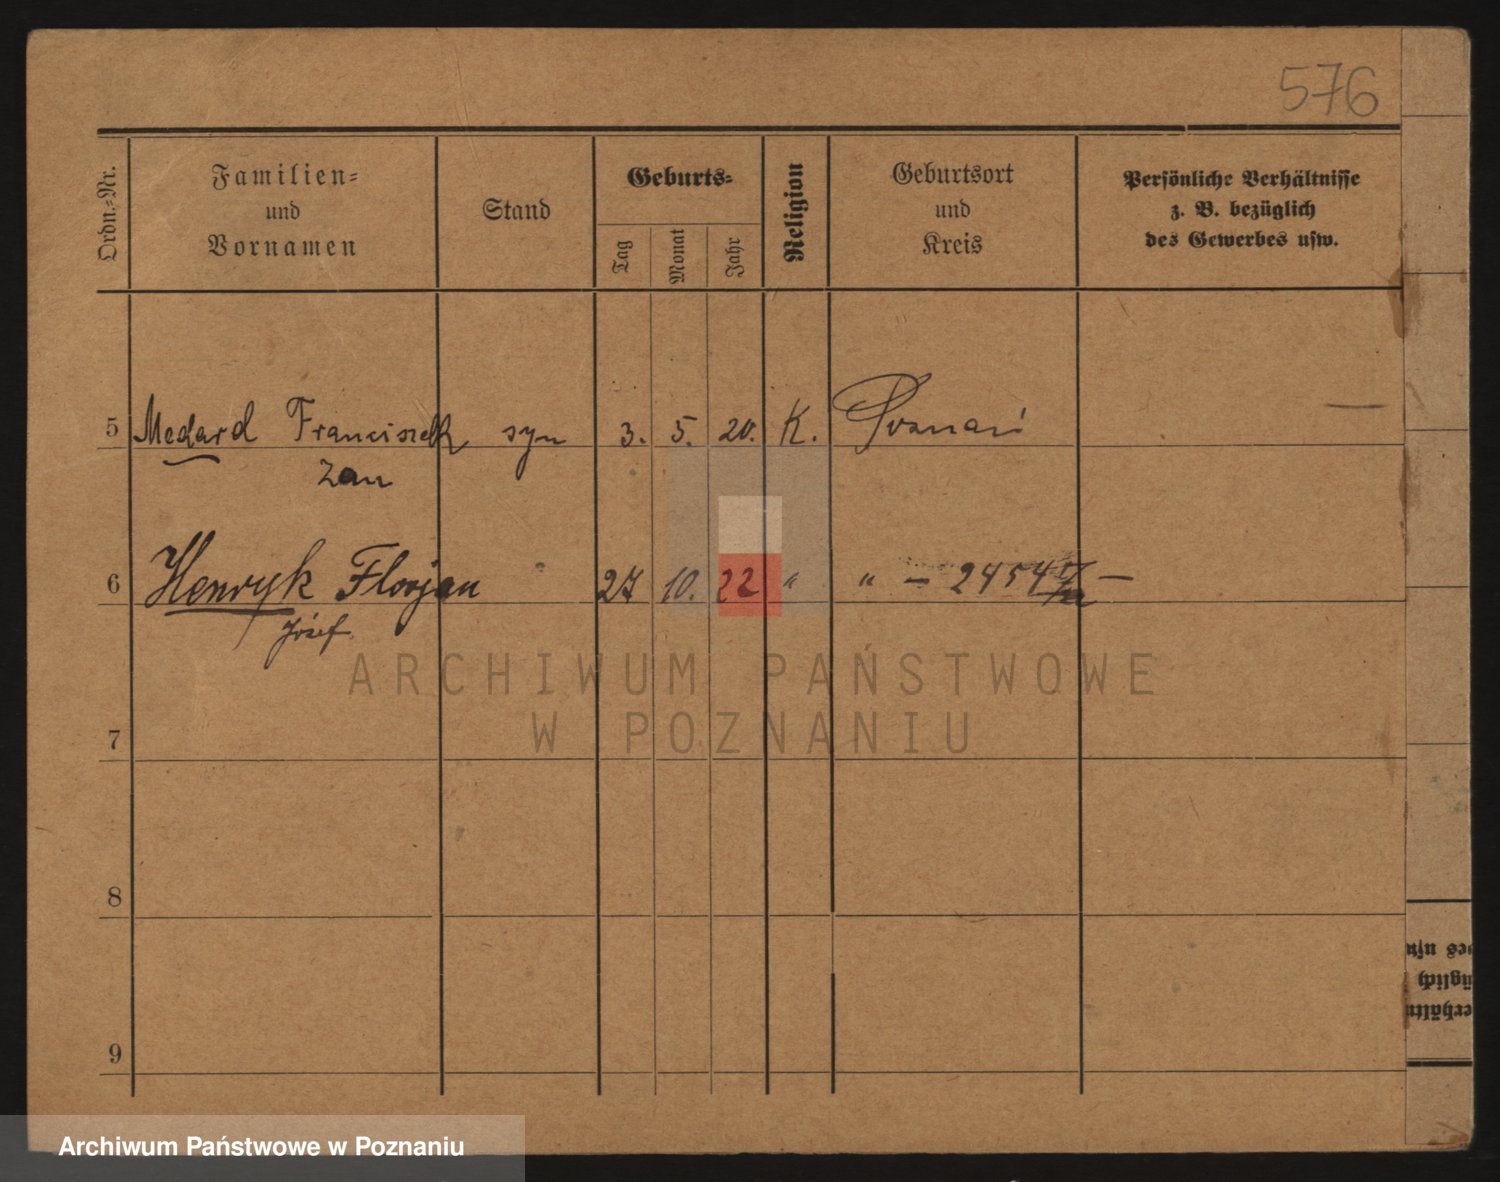 576
Ordn.-Nr.
Familien-
und
Vornamen
Stand
Geburts-
Tag
Monat
Jahr
Religion
Geburtsort
und
Kreis
Persönliche Verhältnisse
z. B. bezüglich
des Gewerbes usw.
5 Medard Franciszek syn 3. 5. 20. K. Poznań —
Jan
6 Henryk Florjan 27 10. 22 " " – 2454 –
Józef
ARCHIWUM PAŃSTWOWE
W POZNANIU
7
8
9
es usw
üglich
erhältn
Archiwum Państwowe w Poznaniu